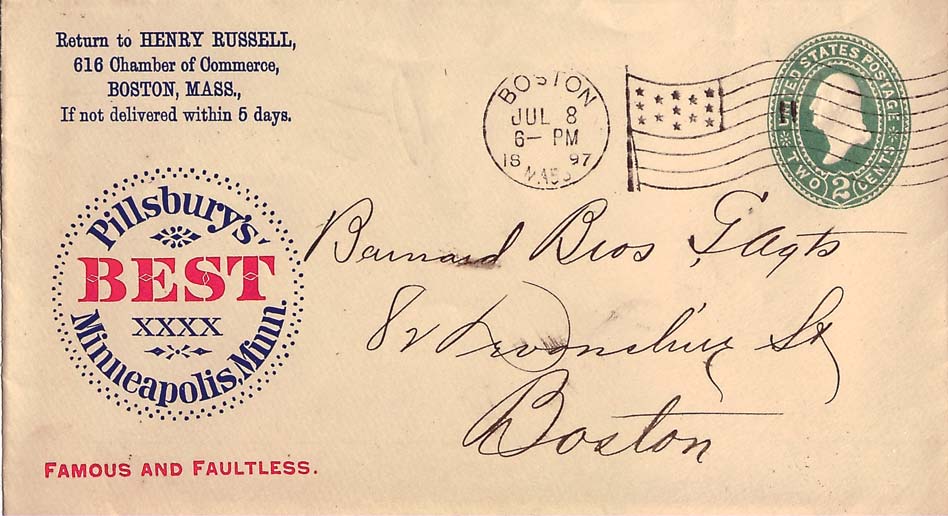 Return to HENRY RUSSELL,
616 Chamber of Commerce,
BOSTON, MASS.,
If not delivered within 5 days.
BOSTON
JUL 8
6— PM
18 97
MASS
UNITED STATES POSTAGE
TWO 2 CENTS
Pillsbury's
BEST
XXXX
Minneapolis, Minn.
FAMOUS AND FAULTLESS.
Bernard Bros Agts
82 Devonshire St
Boston